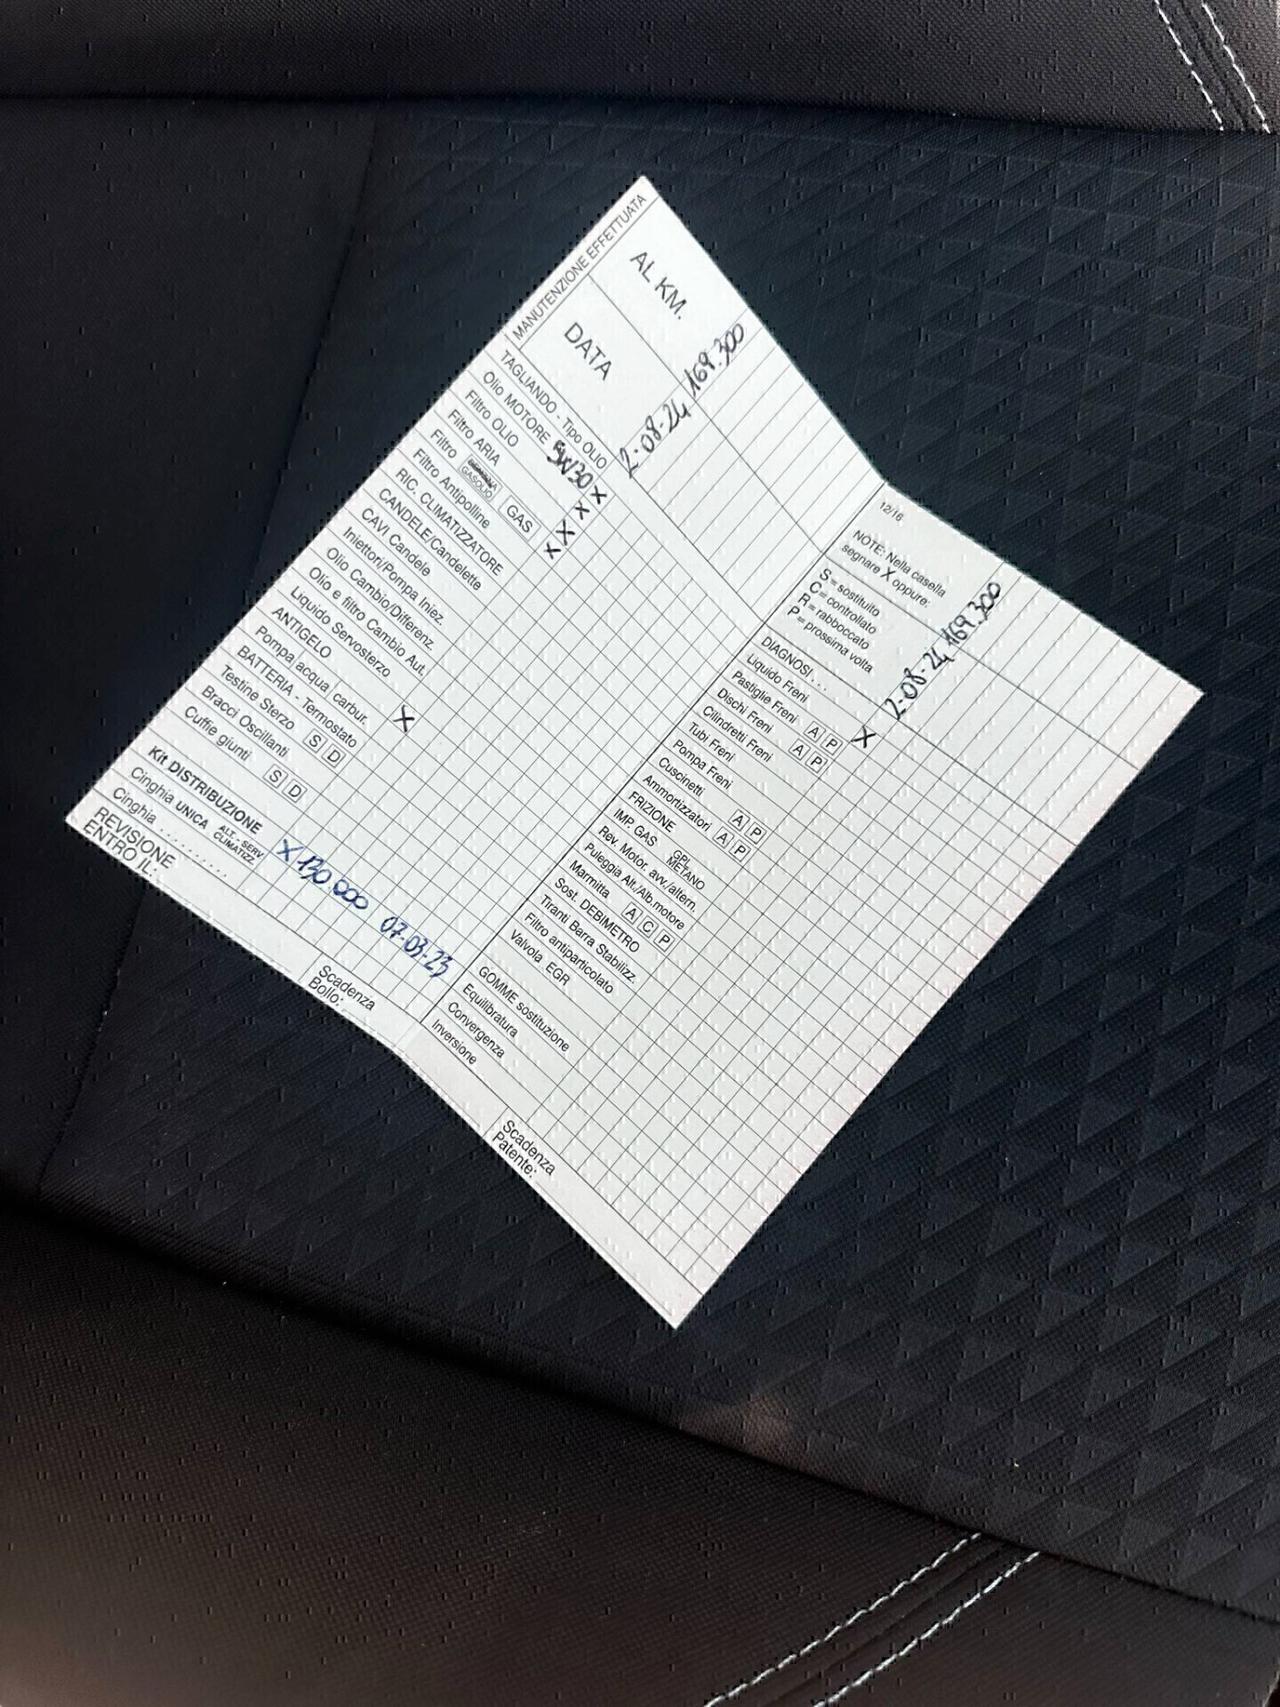 MANUTENZIONE EFFETTUATA
AL KM.
DATA
2-08-24 169.300
TAGLIANDO - Tipo OLIO
Olio MOTORE 5W30 X
Filtro OLIO X
Filtro ARIA X
Filtro GASOLIO GAS X
Filtro Antipolline
RIC. CLIMATIZZATORE
CANDELE/Candelette
CAVI Candele
Iniettori/Pompa Iniez.
Olio Cambio/Differenz.
Olio e filtro Cambio Aut.
Liquido Servosterzo
ANTIGELO X
Pompa acqua carbur.
BATTERIA - Termostato
Testine Sterzo S D
Bracci Oscillanti
Cuffie giunti S D
Kit DISTRIBUZIONE X 130 000 07-03-23
Cinghia UNICA ALT. - SERV. CLIMATIZZ.
Cinghia ..........
REVISIONE
ENTRO IL:
Scadenza
Bollo:
12/16
NOTE: Nella casella
segnare X oppure:
S = sostituito
C = controllato
R = rabboccato
P = prossima volta
2-08-24 169.300
DIAGNOSI . . .
Liquido Freni X
Pastiglie Freni A P
Dischi Freni A P
Cilindretti Freni
Tubi Freni
Pompa Freni
Cuscinetti A P
Ammortizzatori A P
FRIZIONE
IMP. GAS GPL METANO
Rev. Motor. avv./altern.
Puleggia Alt./Alb.motore
Marmitta A C P
Sost. DEBIMETRO
Tiranti Barra Stabilizz.
Filtro antiparticolato
Valvola EGR
GOMME sostituzione
Equilibratura
Convergenza
Inversione
Scadenza
Patente: